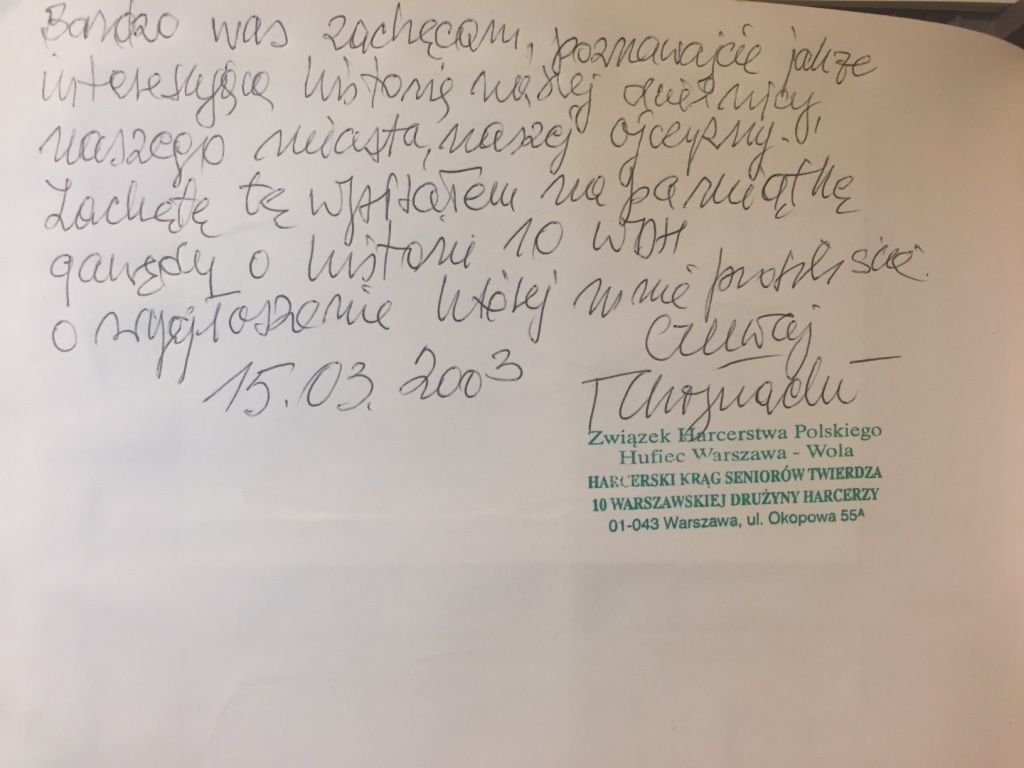 Bardzo was zachęcam, poznawajcie jakże
interesującą historię naszej dzielnicy,
naszego miasta, naszej ojczyzny.
Zachętę tę wpisałem na pamiątkę
gawędy o historii 10 WDH
o wygłoszenie której mnie prosiliście.
Czuwaj
15.03.2003
Związek Harcerstwa Polskiego
Hufiec Warszawa - Wola
HARCERSKI KRĄG SENIORÓW TWIERDZA
10 WARSZAWSKIEJ DRUŻYNY HARCERZY
01-043 Warszawa, ul. Okopowa 55A